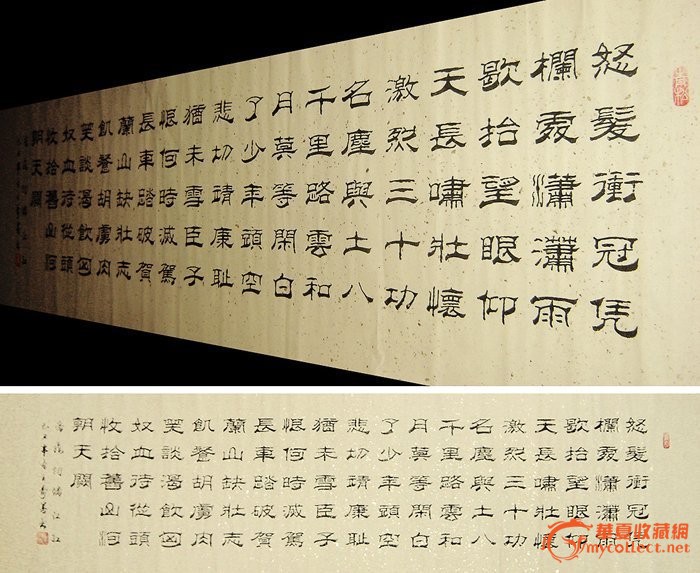 怒髮衝冠凭
欄處瀟瀟雨
歇抬望眼仰
天長嘯壯懷
激烈三十功
名塵與土八
千里路雲和
月莫等閑白
了少年頭空
悲切靖康恥
猶未雪臣子
恨何時滅駕
長車踏破賀
蘭山缺壯志
飢餐胡虜肉
笑談渴飲匈
奴血待從頭
收拾舊山河
朝天闕
怒髮衝冠凭
欄處瀟瀟雨
歇抬望眼仰
天長嘯壯懷
激烈三十功
名塵與土八
千里路雲和
月莫等閑白
了少年頭空
悲切靖康恥
猶未雪臣子
恨何時滅駕
長車踏破賀
蘭山缺壯志
飢餐胡虜肉
笑談渴飲匈
奴血待從頭
收拾舊山河
朝天闕
岳飛詞滿江紅
華夏收藏網
mycollect.net